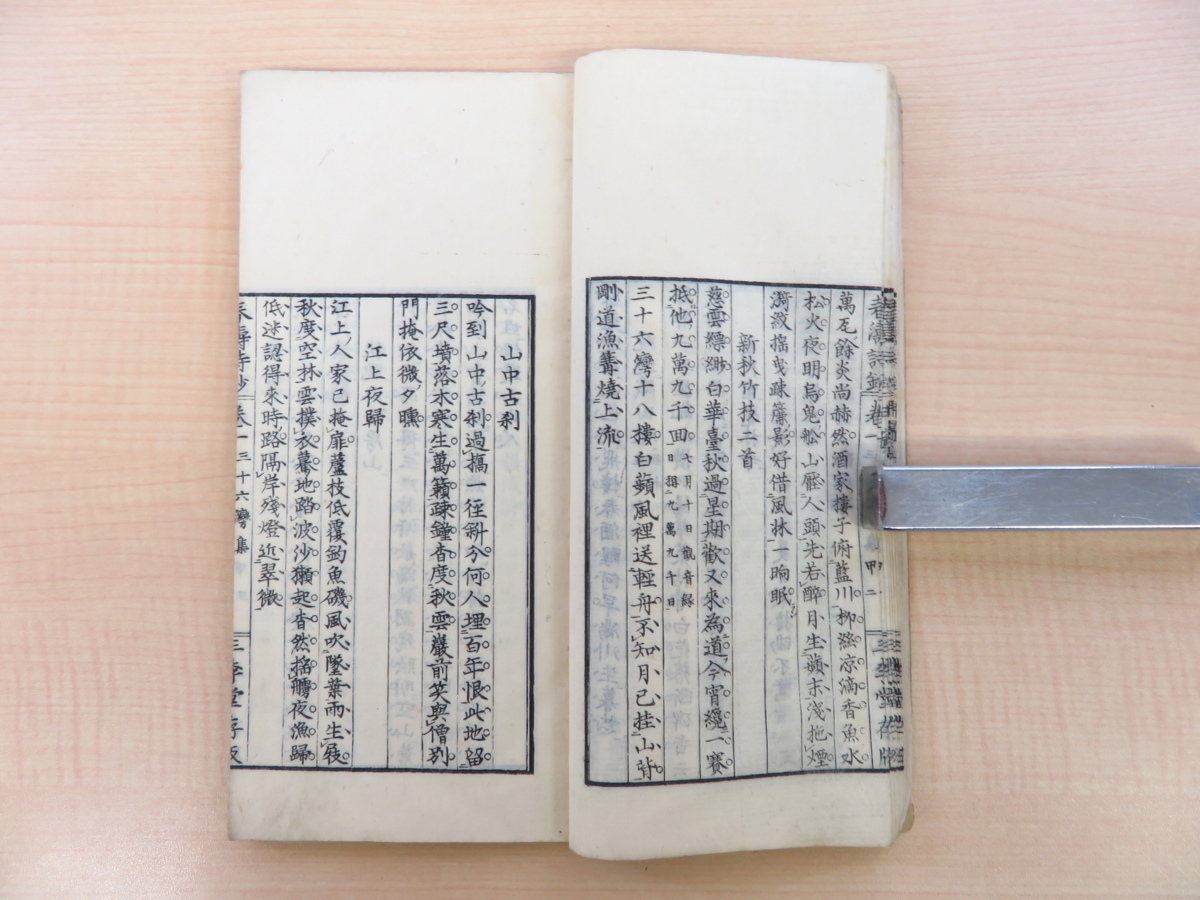 春濤詩鈔 卷十 甲二
萬瓦餘炎尚赫然酒家樓子俯藍川柳絲凉滴香魚水
松火夜明烏鬼船山壓人頭先若醉月生蘋末淺拖煙
漪紋搖曳疎簾影好借風牀一晌眠
新秋竹枝二首
慈雲縹緲白華臺秋過星期歡又來為道今宵纔一賽
抵他九萬九千回七月十日觀音緣
日揖九萬九千日
三十六灣十八樓白蘋風裡送輕舟不知月已挂山背
剛道漁篝燒上流
山中古刹
吟到山中古刹過犒一徑斜分何人埋百年恨此地留
三尺墳落木寒生萬籟疎鐘杳度秋雲巖前笑與僧別
門掩依微夕曛
江上夜歸
江上人家已掩扉蘆枝低覆釣魚磯風吹墜葉雨生屐
秋度空林雲撲衣驀地踏波沙獺起杳然搖艣夜漁歸
低迷認得來時路隔岸殘燈近翠微
卷一 三十六灣集